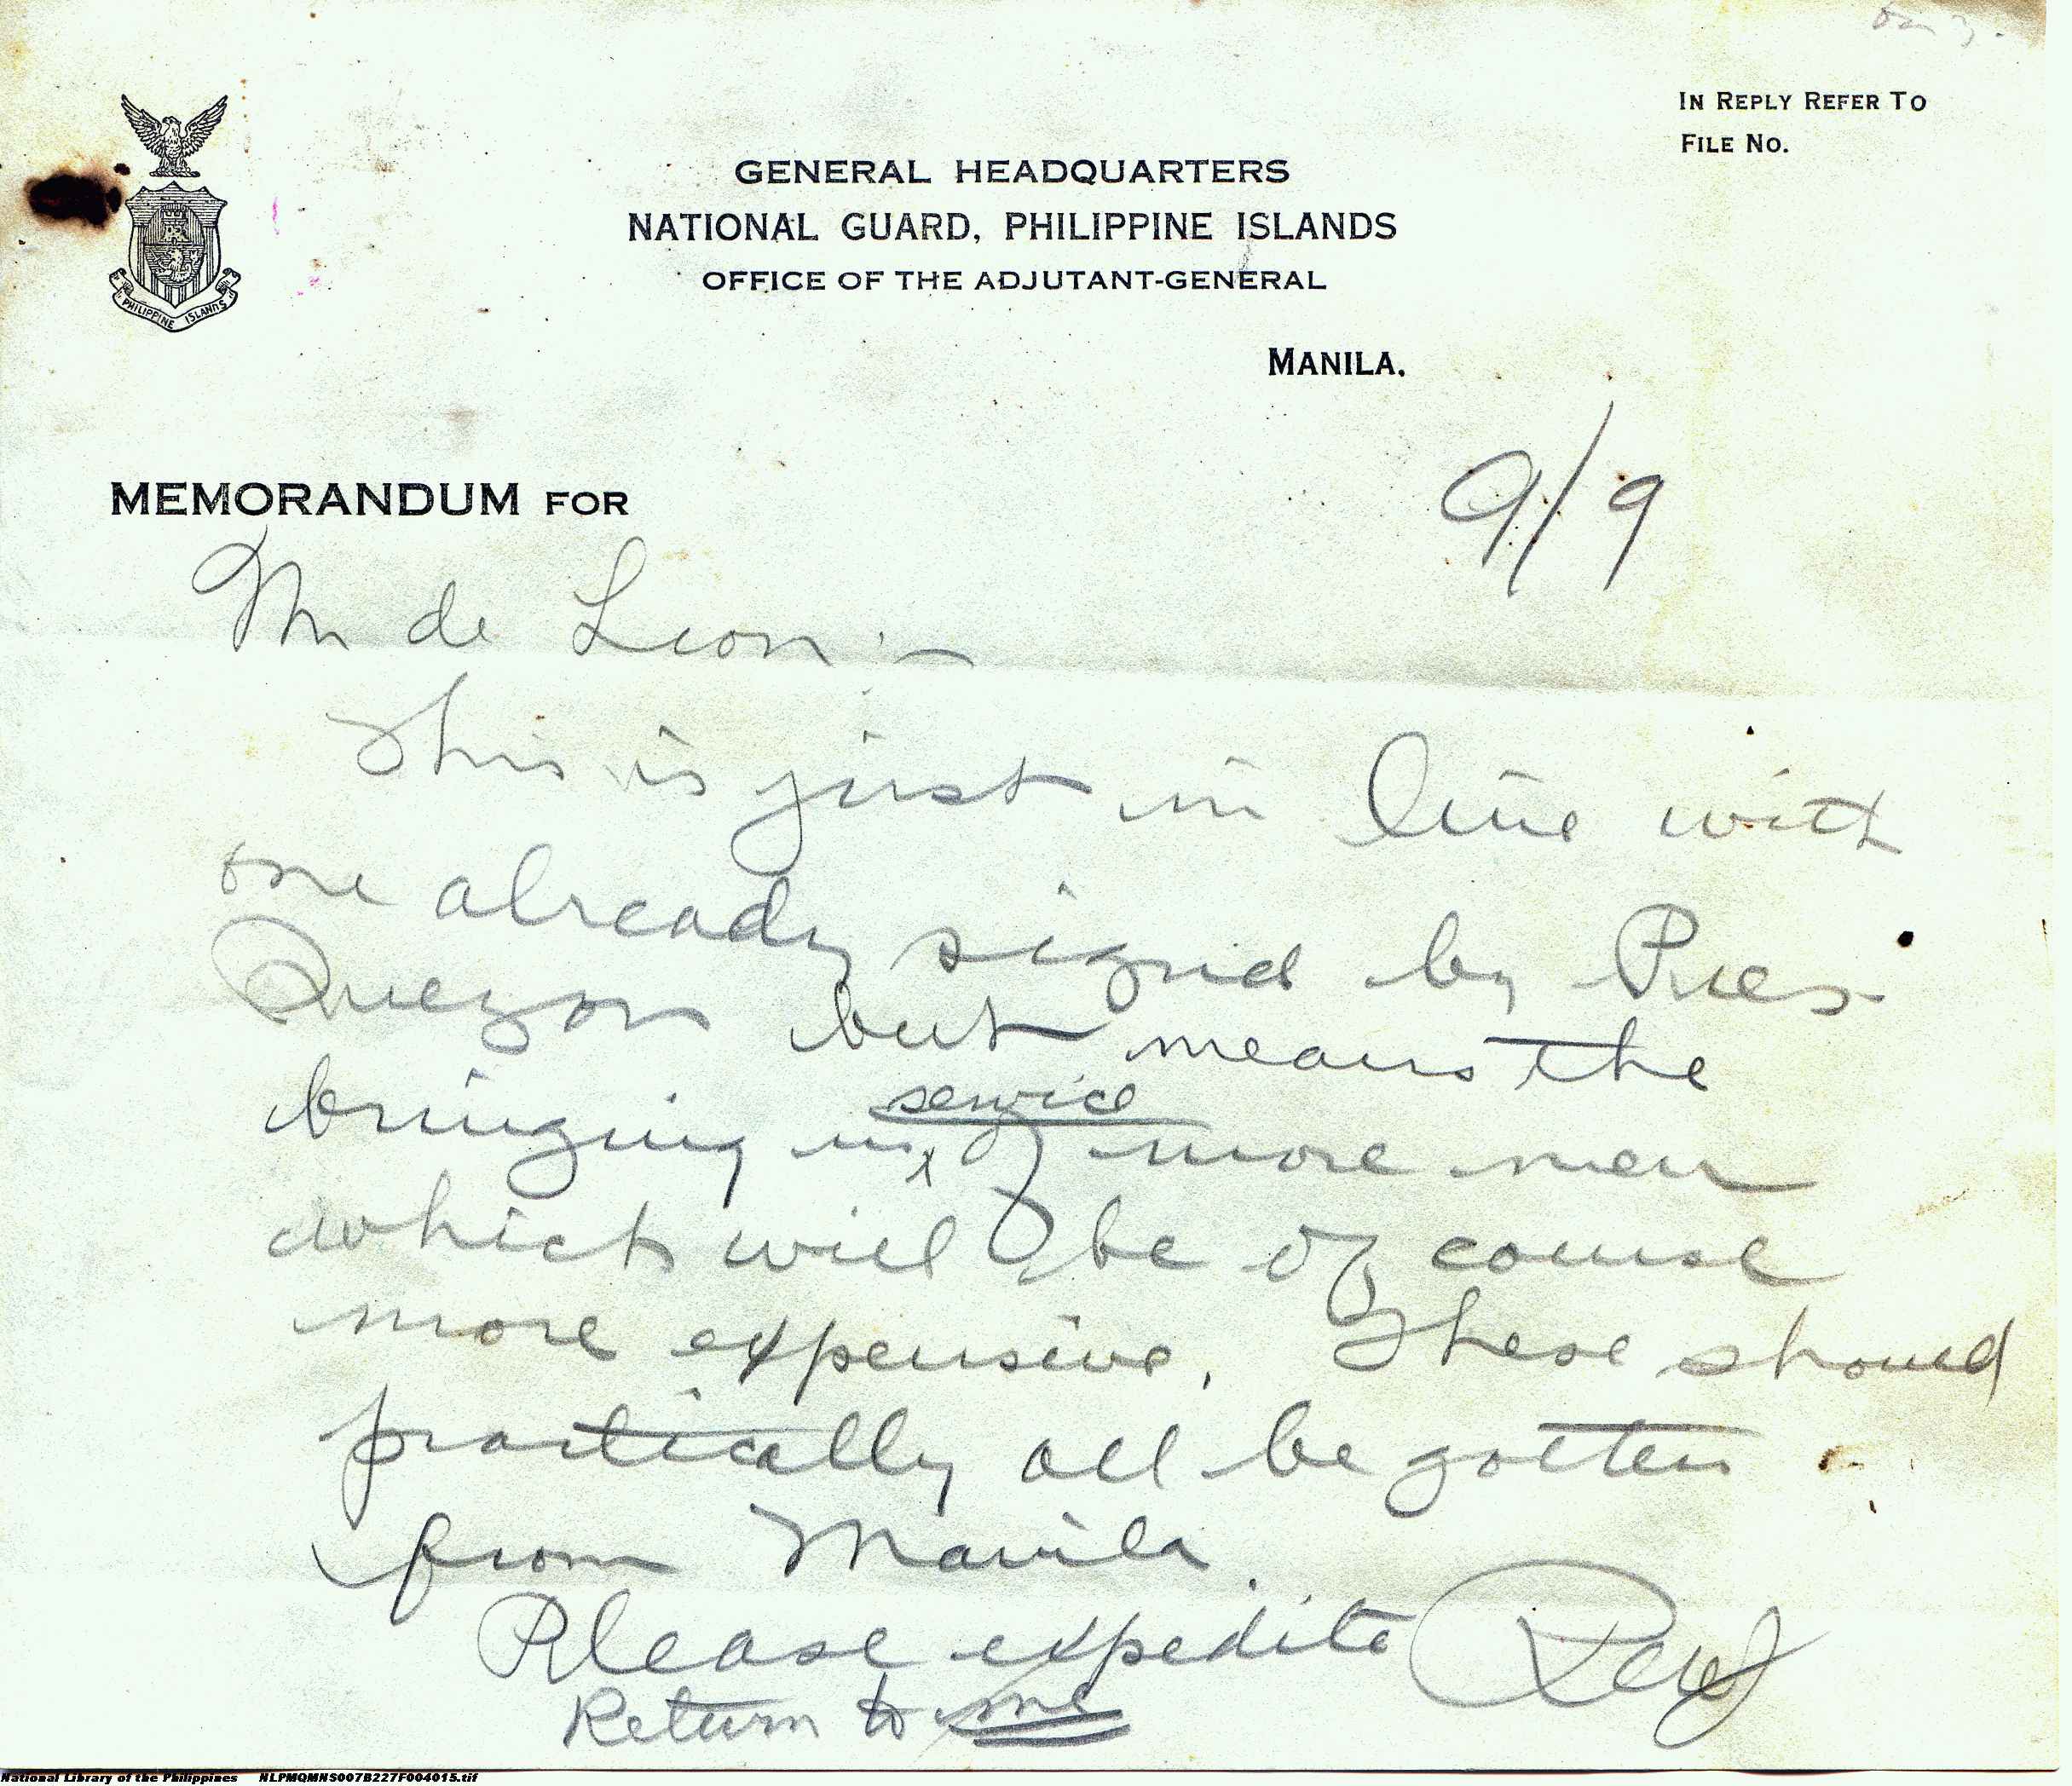 IN REPLY REFER TO
FILE NO.
GENERAL HEADQUARTERS
NATIONAL GUARD, PHILIPPINE ISLANDS
OFFICE OF THE ADJUTANT-GENERAL
MANILA.
PHILIPPINE ISLANDS
9/9
MEMORANDUM FOR
Mr de Leon:—
This is just in line with
one already signed by Pres
Quezon but means the
service
bringing in of more men
which will be of course
more expensive. These should
practically all be gotten
from Manila.
Please expedite
Return to me
National Library of the Philippines NLPMQMNS007B227F004015.tif